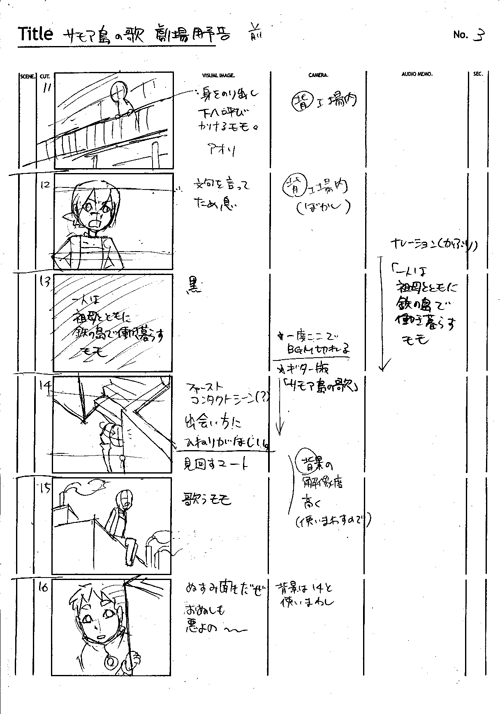 Title サモア島の歌 劇場用予告 前
No. 3
SCENE. CUT. VISUAL IMAGE. CAMERA. AUDIO MEMO. SEC.
11
身をのり出し
下へ呼び
かけるモモ。
アオリ
背 工場内
12
文句を言って
ため息
背 工場内
(ぼかし)
ナレーション(かぶり)
「一人は
祖母とともに
鉄の島で
働き暮らす
モモ
13
一人は
祖母とともに
鉄の島で働き暮らす
モモ
黒
一度ここで
BGM切れる
ギター版
「サモア島の歌」
14
ファースト
コンタクトシーン(?)
出会い方に
ひねりがほしい。
見回すユート
背景の
解像度
高く
(使いまわすので)
15
歌うモモ
16
ぬすみ聞きだぜ
おぬしも
悪よの〜
背景は14と
使いまわし